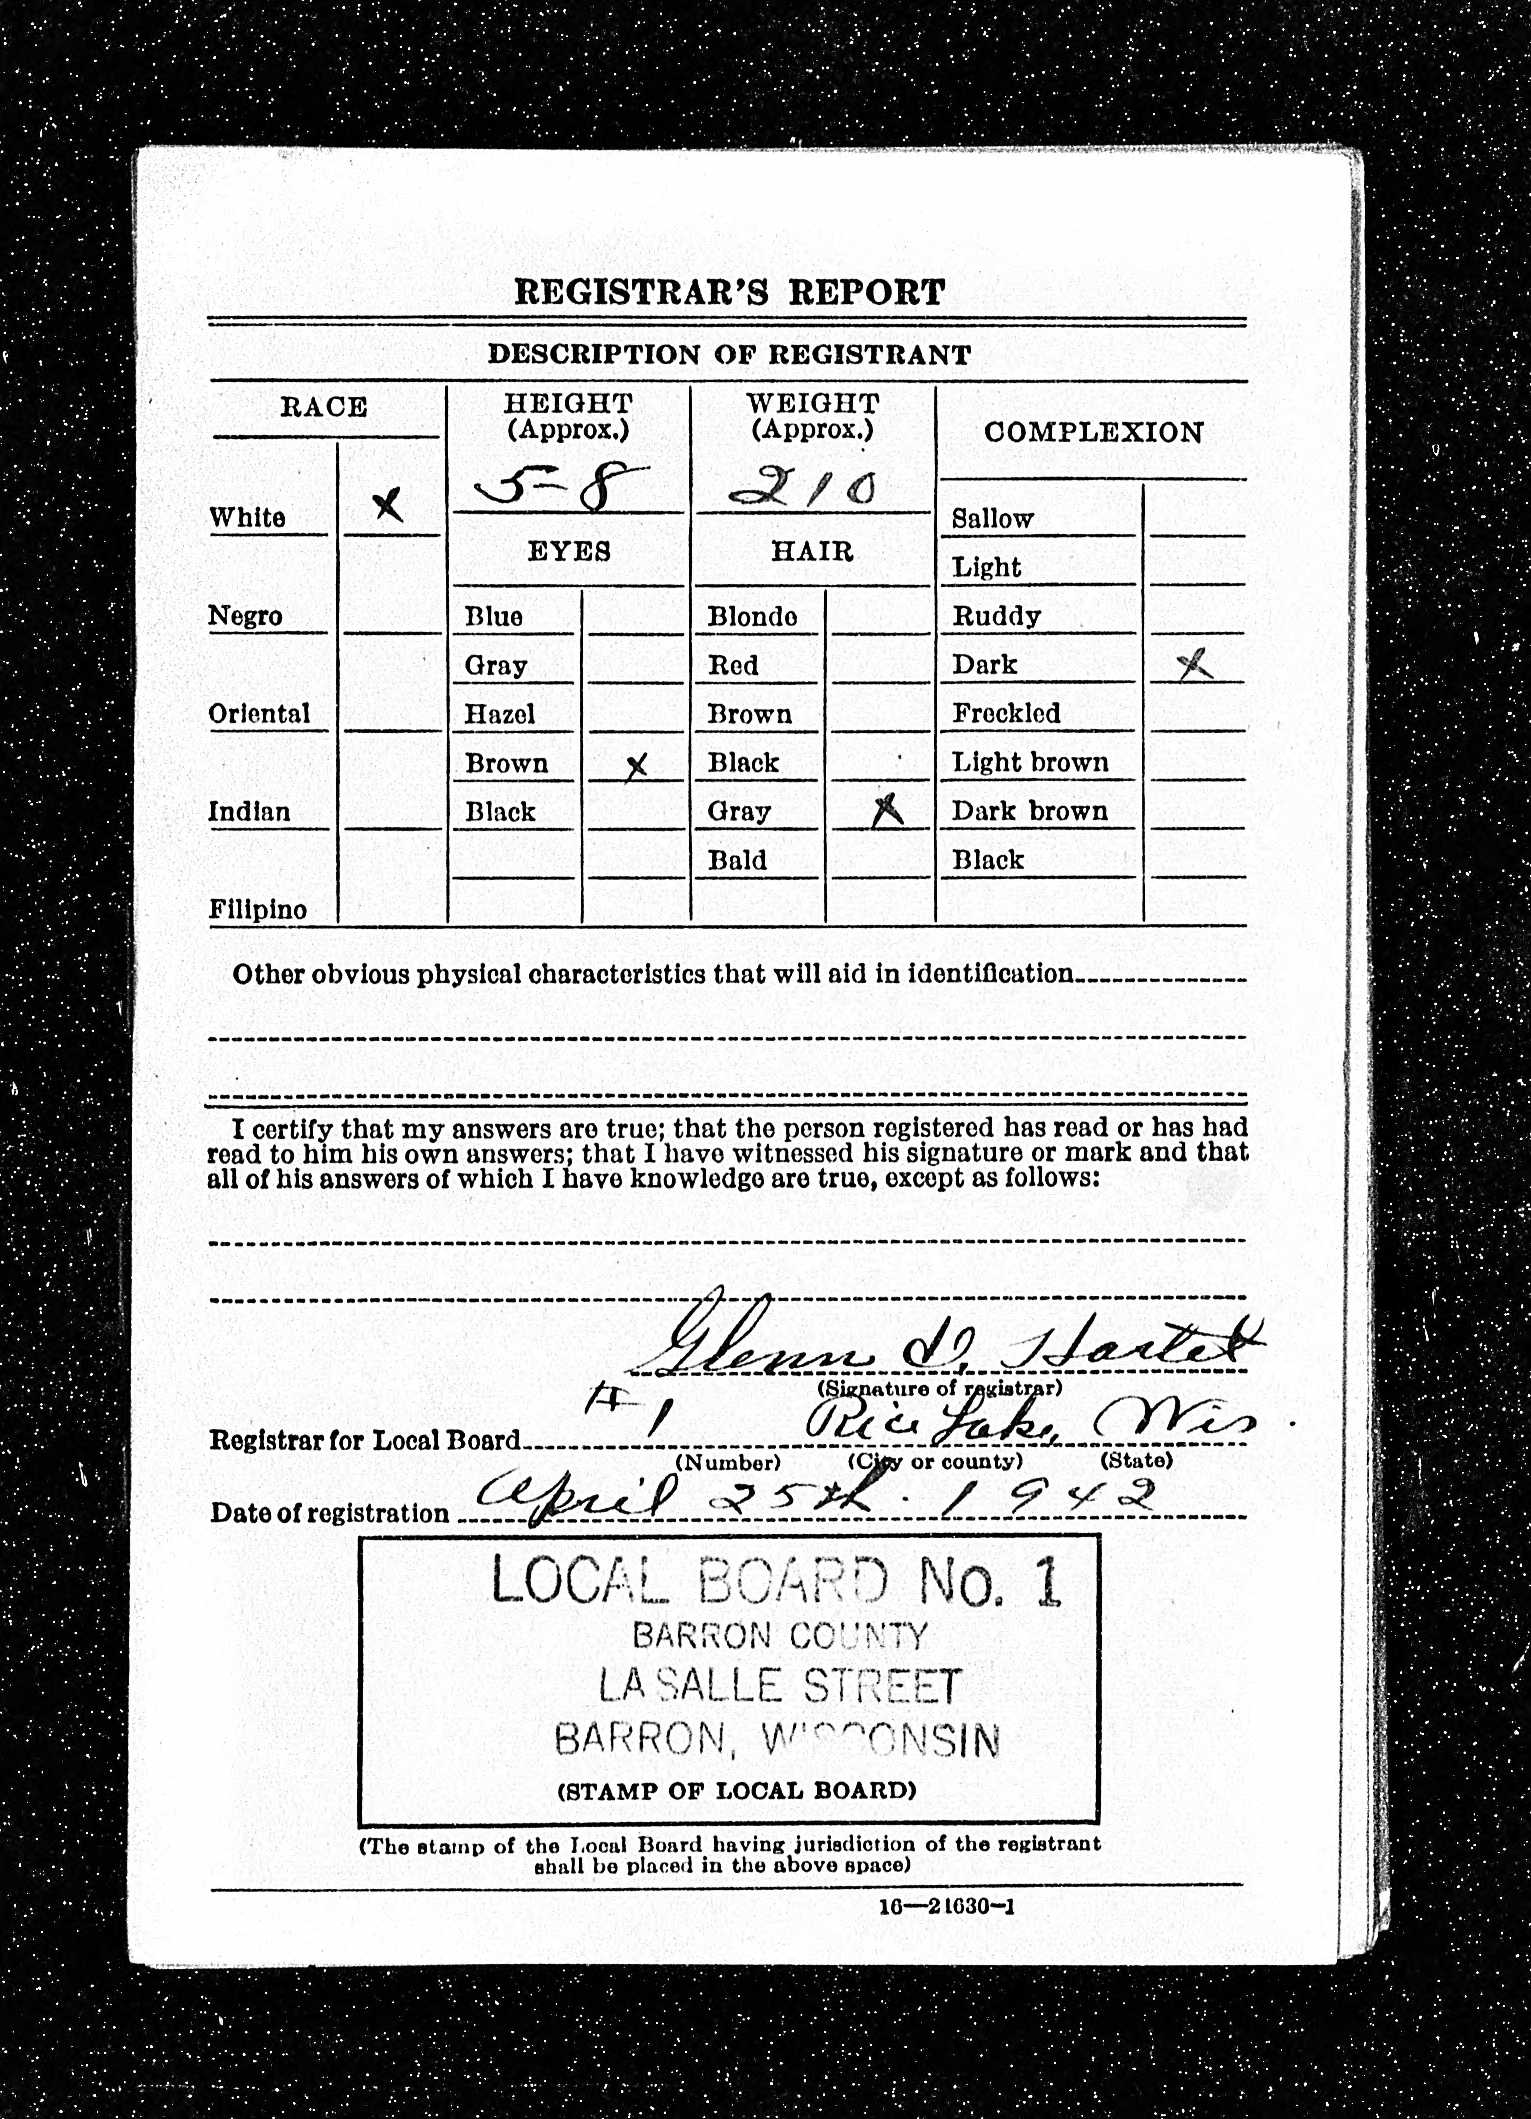 REGISTRAR'S REPORT
DESCRIPTION OF REGISTRANT
RACE
HEIGHT
(Approx.)
WEIGHT
(Approx.)
COMPLEXION
White X
5-8
210
Sallow
EYES
HAIR
Light
Negro
Blue
Blonde
Ruddy
Gray
Red
Dark X
Oriental
Hazel
Brown
Freckled
Brown X
Black
Light brown
Indian
Black
Gray X
Dark brown
Bald
Black
Filipino
Other obvious physical characteristics that will aid in identification
I certify that my answers are true; that the person registered has read or has had
read to him his own answers; that I have witnessed his signature or mark and that
all of his answers of which I have knowledge are true, except as follows:
Glenn D. Hartel
(Signature of registrar)
Registrar for Local Board # 1 Rice Lake, Wis.
(Number) (City or county) (State)
Date of registration April 25th. 1942
LOCAL BOARD No. 1
BARRON COUNTY
LA SALLE STREET
BARRON, WISCONSIN
(STAMP OF LOCAL BOARD)
(The stamp of the Local Board having jurisdiction of the registrant
shall be placed in the above space)
16—21630-1